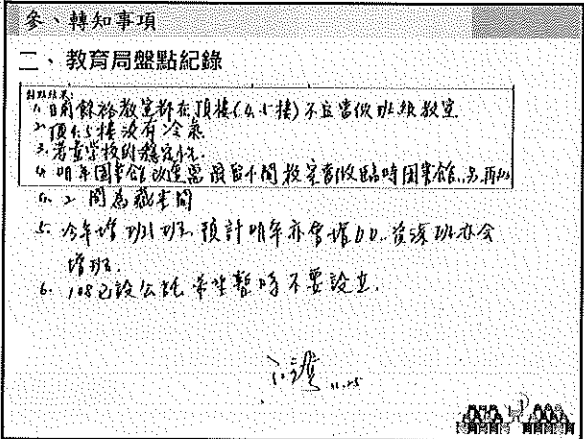 參、轉知事項
二、教育局盤點紀錄
盤點結果:
1. 目前餘裕教室都在頂樓(4.5樓)不宜當做班級教室.
2. 頂4.5樓沒有冷氣
3. 考量學校的穩定性.
4. 明年圖書館改造需預留4間教室當做臨時圖書館.另再
2間為藏書間
5. 今年增班1班. 預計明年亦會增班. 資源班亦會
增班.
6. 108已設公託 希望暫時不要設立.
11.25